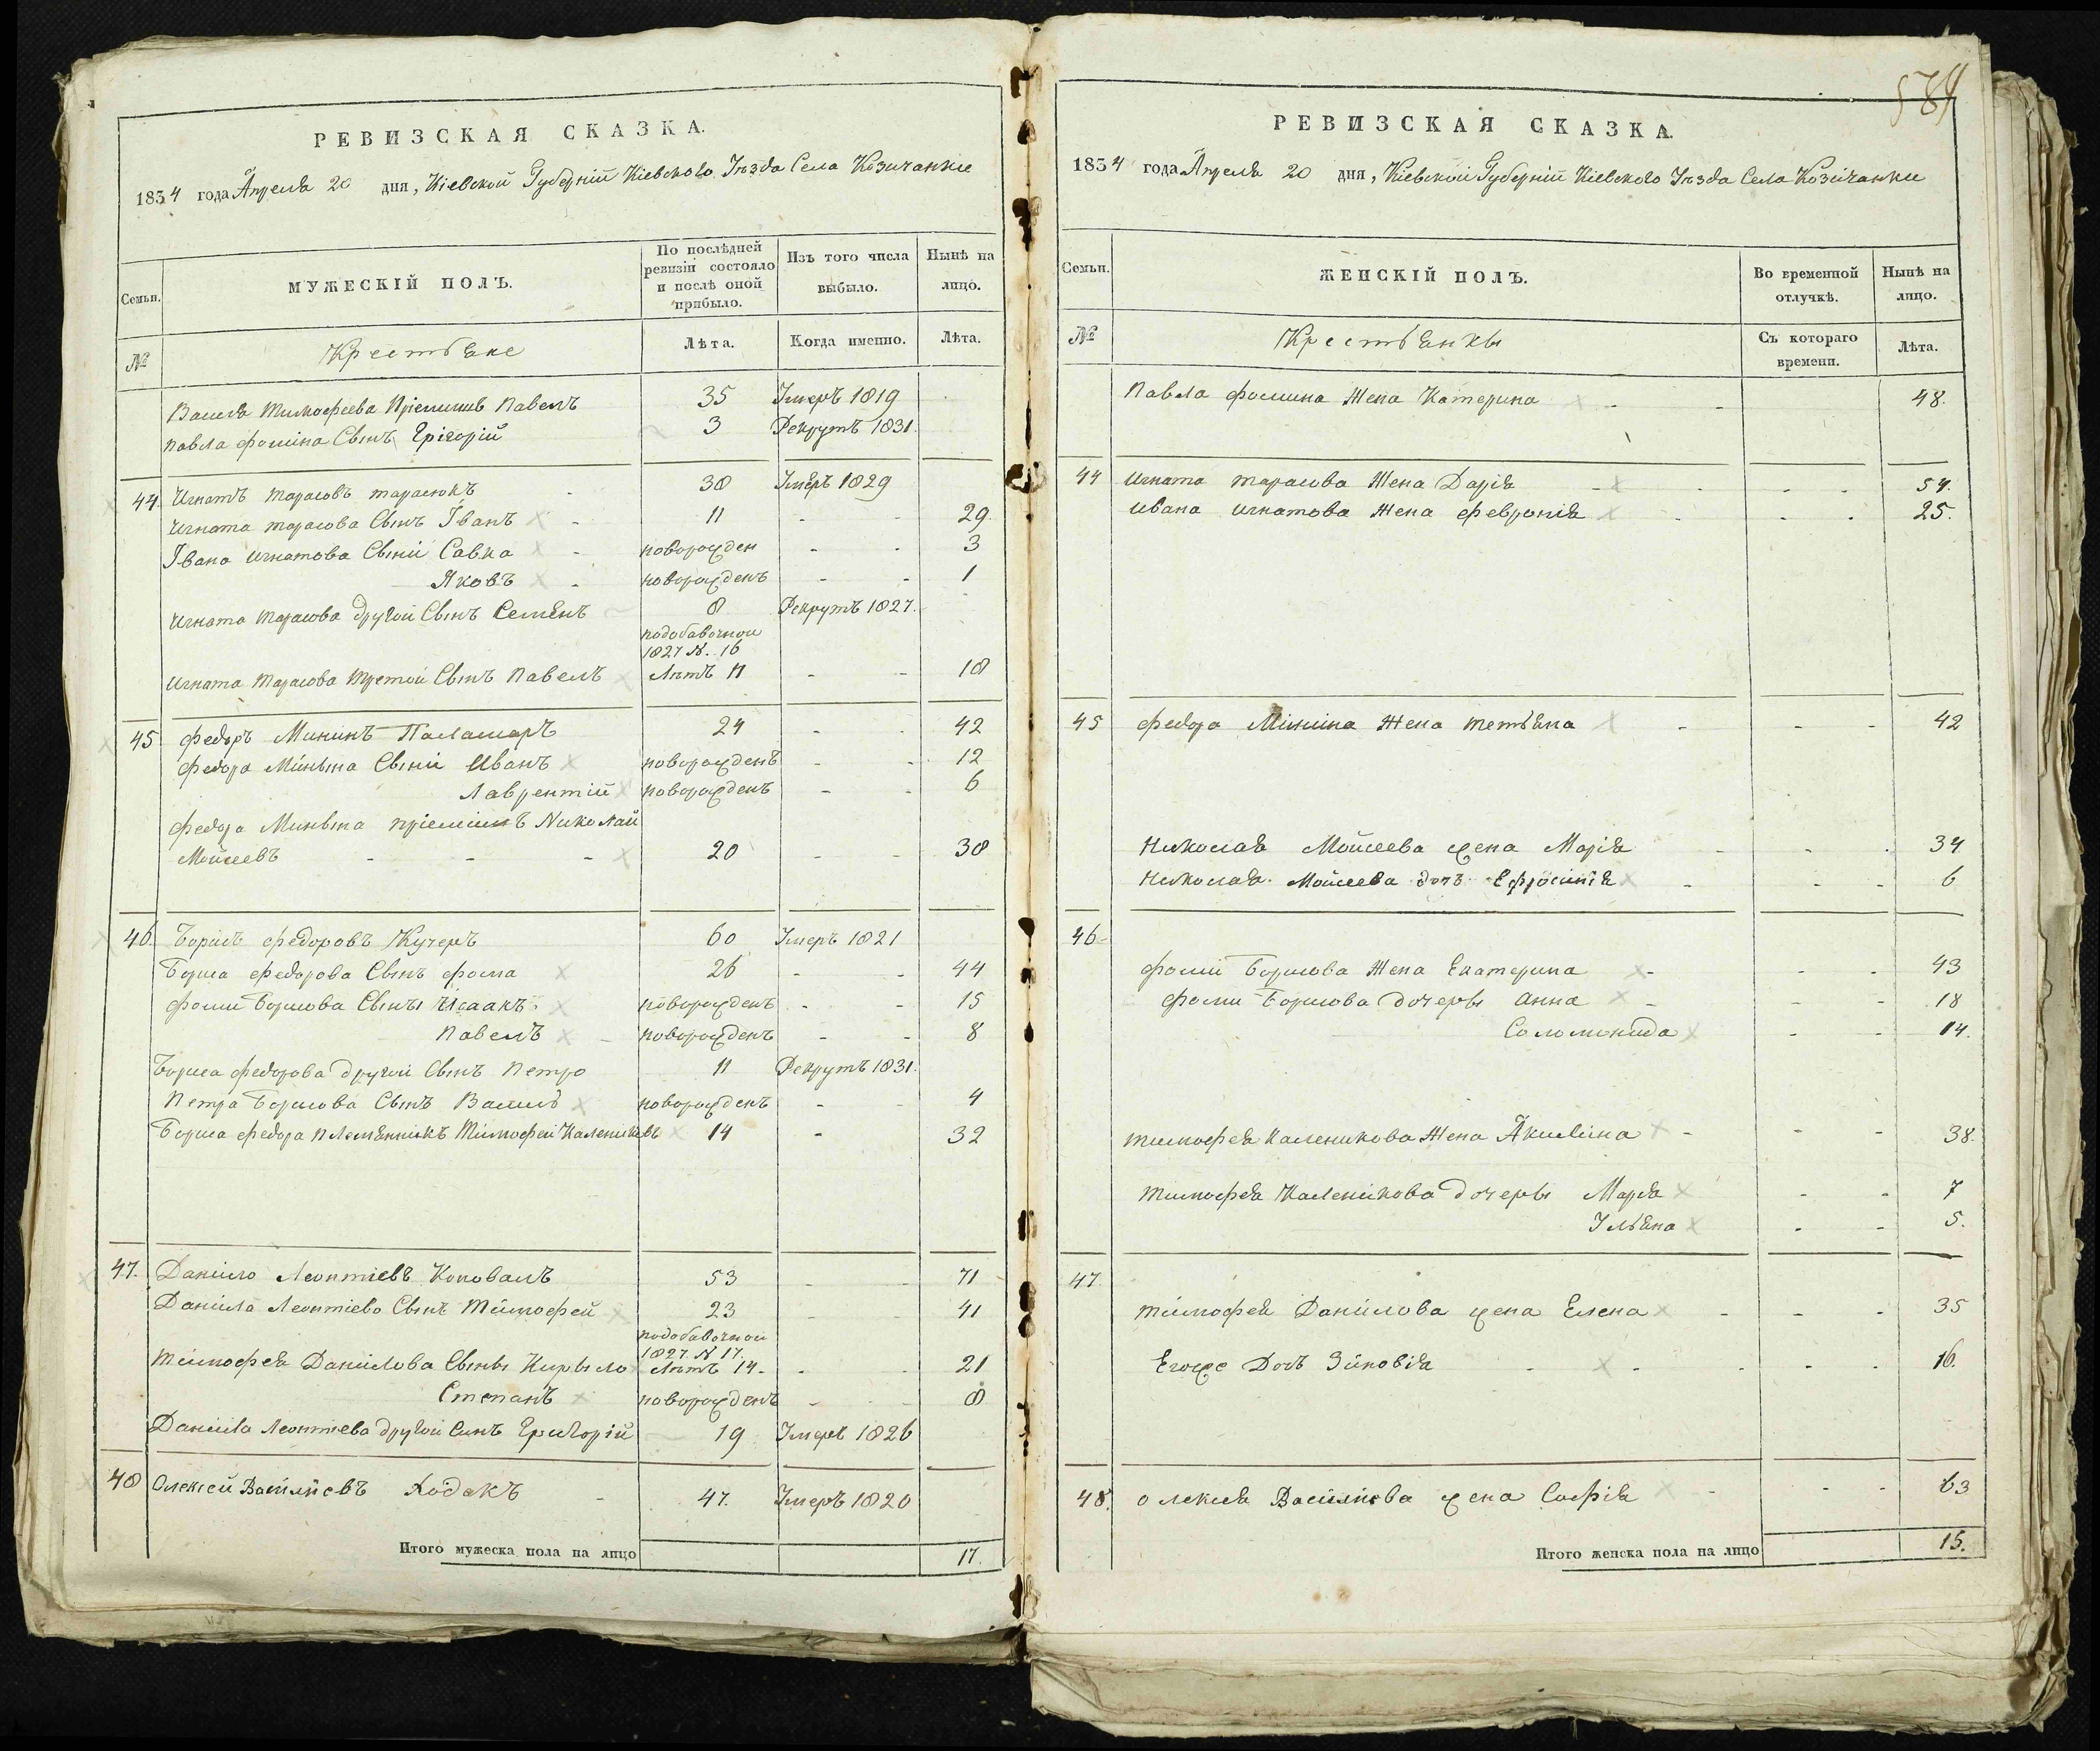 РЕВИЗСКАЯ СКАЗКА.
1834 года Апреля 20 дня, Кіевской Губерніи Кіевского Уезда Села Козичанки
Семьи.
МУЖЕСКІЙ ПОЛЪ.
По послѣдней ревизіи состояло и послѣ оной прибыло.
Изъ того числа выбыло.
Нынѣ на лицо.
№
Крестьяне
Лѣта.
Когда именно.
Лѣта.
Василя Тимофеева Пріемишь Павелъ 35 Умеръ 1819
Павла Фомина Сынъ Грігорій 3 Рекрутъ 1831
44. Игнатъ Тарасовъ Тарасюкъ 38 Умеръ 1829
Игната Тарасова Сынъ Іванъ 11 - - 29.
Івана Игнатова Сыны Савка новорожден - - 3
Яковъ новорожденъ - - 1
Игната Тарасова другой Сынъ Семенъ 8 Рекрутъ 1827.
подобавочной
1827 N. 16
Игната Тарасова третой Сынъ Павелъ Лѣтъ 11 - - 18
45 Федоръ Мининъ Паламаръ 24 - - 42
Федора Минына Сыны Иванъ новорожденъ - - 12
Лаврентій новорожденъ - - 6
Федора Минына пріемишъ Николай
Мойсеевъ - - - 20 - - 38
46. Борисъ Федоровъ Кучеръ 60 Умеръ 1821
Бориса Федорова Сынъ Фома 26 - - 44
Фоми Борисова Сыны Исаакъ новорожденъ - - 15
Павелъ новорожденъ - - 8
Бориса Федорова другой Сынъ Петро 11 Рекрутъ 1831.
Петра Борисова Сынъ Василь новорожденъ - - 4
Бориса Федора племянникъ Тимофей Калениковъ 14 - 32
47. Данило Леонтіевъ Коповалъ 53 - - 71
Данила Леонтіево Сынъ Тимофей 23 - - 41
подобавочной
1827. N 17.
Тимофея Данилова Сыны Кирыло Лѣтъ 14 - - - 21
Степанъ новорожденъ - - 8
Данила Леонтіева другой Синъ Григорій 19 Умеръ 1826
48 Олексей Васильевъ Ходакъ - 47. Умеръ 1820
Итого мужеска пола на лицо 17.
РЕВИЗСКАЯ СКАЗКА.
1834 года Апреля 20 дня, Кіевской Губерніи Кіевского Уезда Села Козичанки
Семьи.
ЖЕНСКІЙ ПОЛЪ.
Во временной отлучкѣ.
Нынѣ на лицо.
№
Крестьянкы
Съ котораго времени.
Лѣта.
Павла Фомина Жена Катерина - - 48.
44 Игната Тарасова Жена Дарія - - - - 54.
Ивана Игнатова Жена Февронія - - - 25.
45 Федора Минина Жена Тетьяна - - - 42
Николая Мойсеева жена Марія - - - 34
Николая Мойсеева дочъ Ефросинія - - - 6
46
Фоми Борисова Жена Екатерина - - - 43
Фоми Борисова Дочеры Анна - - - 18
Соломонида - - 14.
Тимофея Каленикова Жена Акилина - - - 38.
Тимофея Каленикова Дочеры Марія - - 7
Ульяна - - 5.
47.
Тимофея Данилова жена Елена - - - 35
Егоже Дочъ Зіновія - - - - - 16.
48. Олексея Василіева жена Софія - - - 63
Итого женска пола на лицо 15.